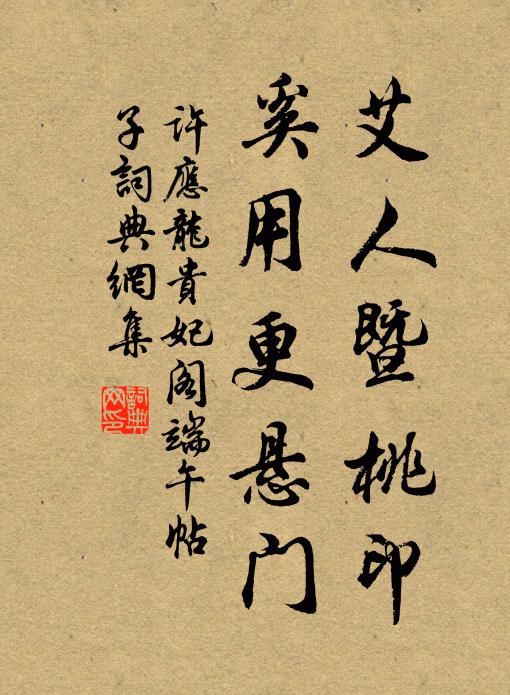 艾人暨桃印
奚用更悬门
許應龍貴妃阁端午帖
子詞典網集
詞典
网印